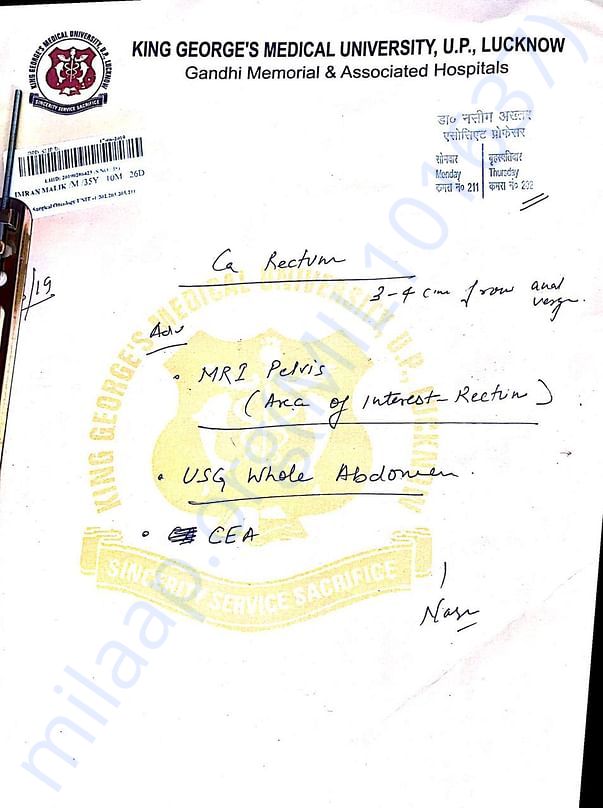 KING GEORGE'S MEDICAL UNIVERSITY, U.P., LUCKNOW
Gandhi Memorial & Associated Hospitals
KING GEORGE'S MEDICAL UNIVERSITY U.P. LUCKNOW
SINCERITY SERVICE SACRIFICE
डा० नसीम अख्तर
एसोसिएट प्रोफेसर
सोमवार
Monday
कमरा नं० 211
बृहस्पतिवार
Thursday
कमरा नं० 202
IMRAN MALIK /M /35Y 10M 26D
Surgical Oncology UNIT
/19
Ca Rectum
3-4 cm from anal verge.
Adv
• MRI Pelvis
(Area of Interest - Rectum)
• USG Whole Abdomen.
• CEA
KING GEORGE'S MEDICAL UNIVERSITY U.P. LUCKNOW
SINCERITY SERVICE SACRIFICE
milaap.org